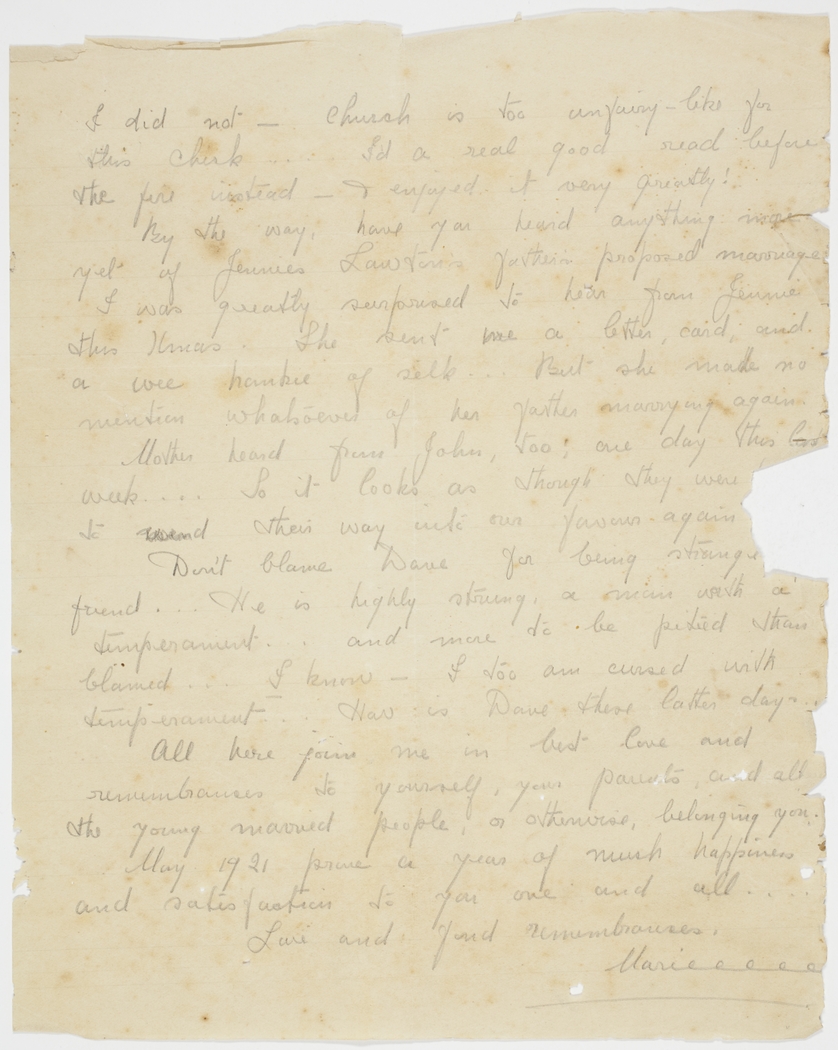 I did not — Church is too unfairy-like for
this chick .... I'd a real good read before
the fire instead — & enjoyed it very greatly!
By the way, have you heard anything more
yet of Jennies Lawton's father's proposed marriage
I was greatly surprised to hear from Jennie
this Xmas. She sent me a letter, card, and
a wee hankie of silk... But she made no
mention whatsoever of her father marrying again.
Mother heard from John, too, one day this last
week.... So it looks as though they were
to wend their way into our favour again
Don't blame Dave for being strange
friend... He is highly strung, a man with a
temperament... and more to be pitied than
blamed.... I know — I too am cursed with
temperament... How is Dave these latter days...
All here joins me in best love and
remembrances to yourself, your parents, and all
the young married people, or otherwise, belonging you.
May 1921 prove a year of much happiness
and satisfaction to you one and all....
Love and fond remembrances.
Marie